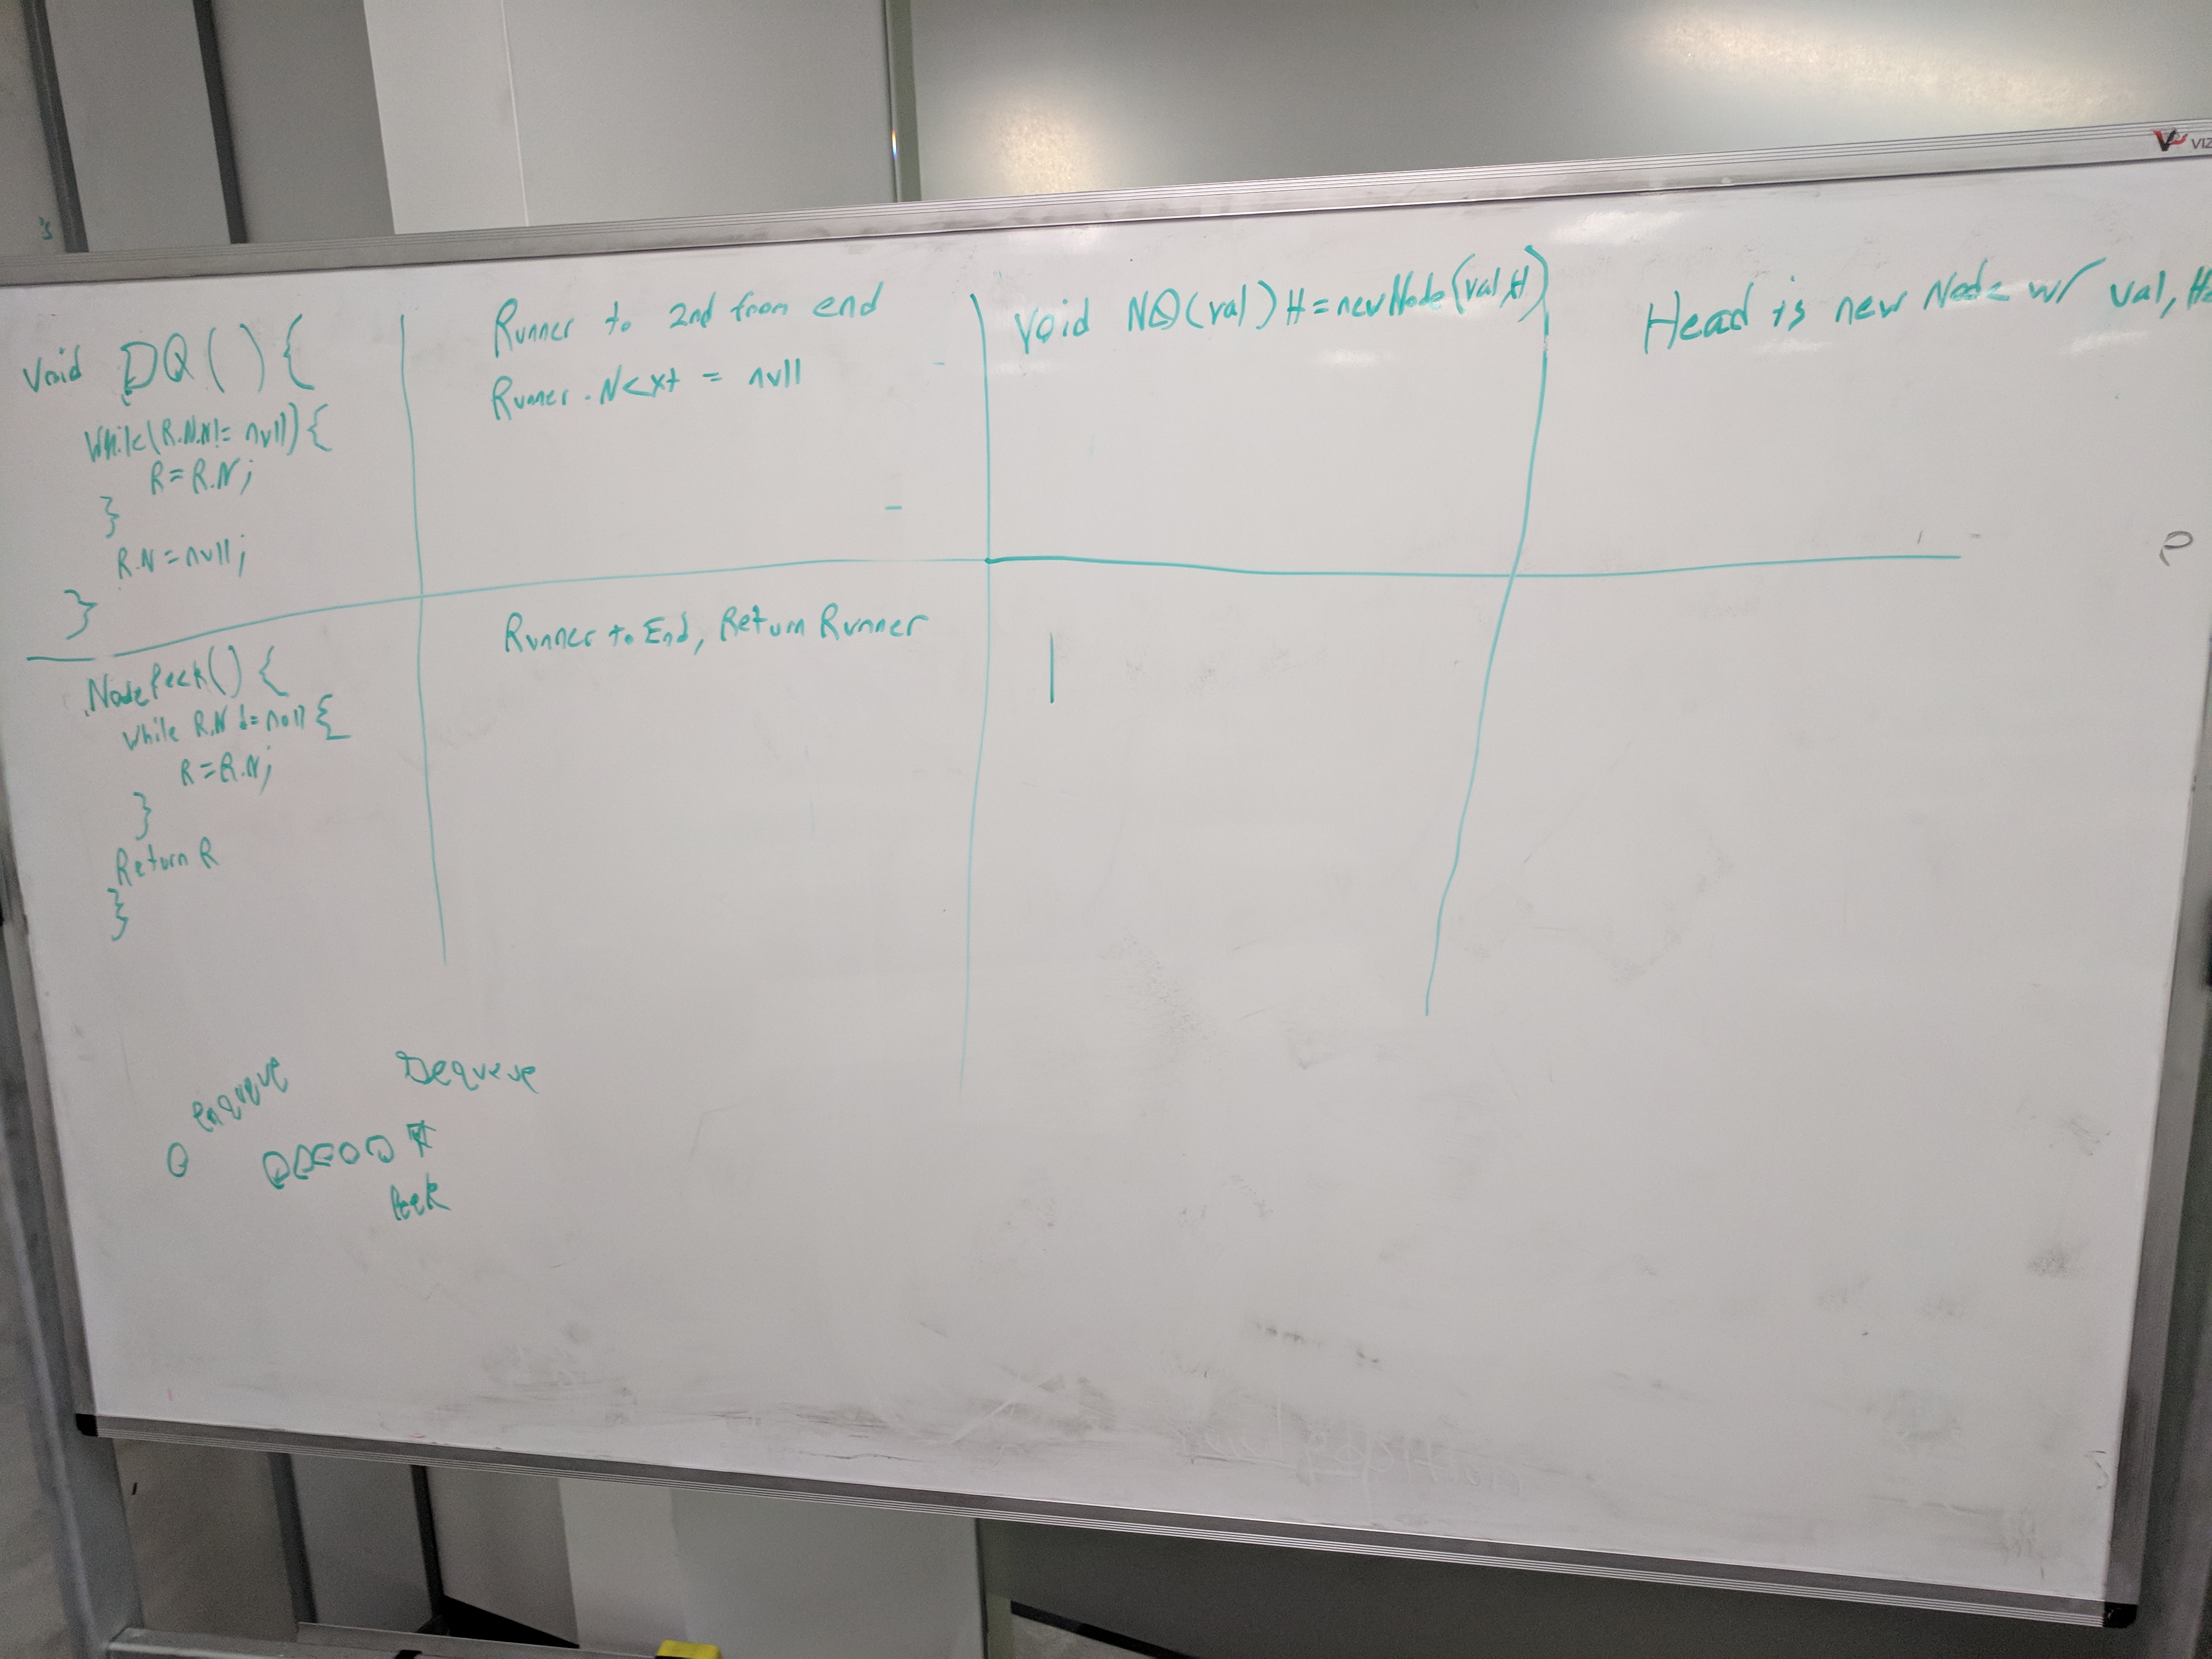 Void DQ() {
While(R.N.N != null) {
R = R.N;
}
R.N = null;
}
Runner to 2nd from end
Runner.Next = null
Void NQ(val) H = new Node(val, H)
Head is new Node w/ val, He
Node Peek() {
While R.N != null {
R = R.N;
}
Return R
}
Runner to End, Return Runner
enqueue
Dequeue
Peek
VIZ
P